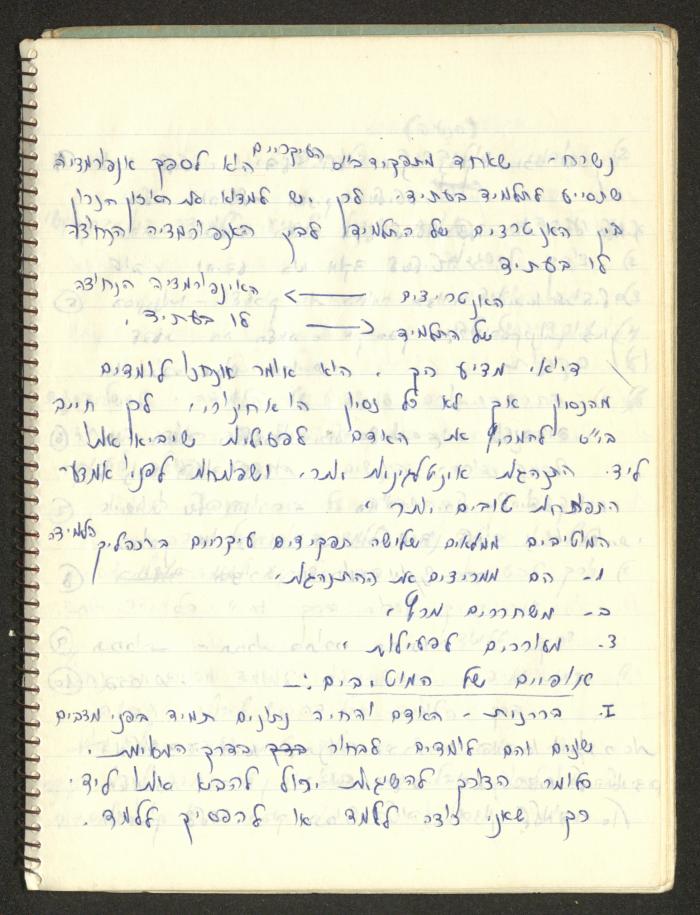 נשרת - שאחד מתפקידי בי"ס העיקריים הוא לספק אנפורמציה
שתסייע לתלמיד בעתיד. לכן יש למצוא את האיזון הנכון
בין האנטרצים של התלמיד לבין האנפורמציה הנחוצה
לו בעתיד
האנטריצים ← האינפורמציה הנחוצה
של התלמיד → לו בעתיד.
דיואי מציע כך. הוא אומר אנחנו לומדים
מהנסיון אך לא כל נסיון הוא חינוכי, לכן חייב
בי"ס להמריץ את האדם לפעילות שיביאו את
ליד התנהגות אינטלגנית יותר, ושפותחת לפניו אמצעי
התפתחות טובים יותר
המוטיבים ממלאים שלושה תפקידים עיקריים בתהליך הלמידה
1- הם ממריצים את ההתנהגות.
ב- משחררים מרץ.
3- מעוררים לפעילות
אופיים של המוטיבים :-
I. בררנות - האדם והחיה נתונים תמיד בפני מצבים
שונים והם לומדים לבחור בדרך המתאימה.
כלומר הצורך להשיגות יכול להביא אותו ליד
כך שאני רוצה ללמד או להפסיק ללמד.